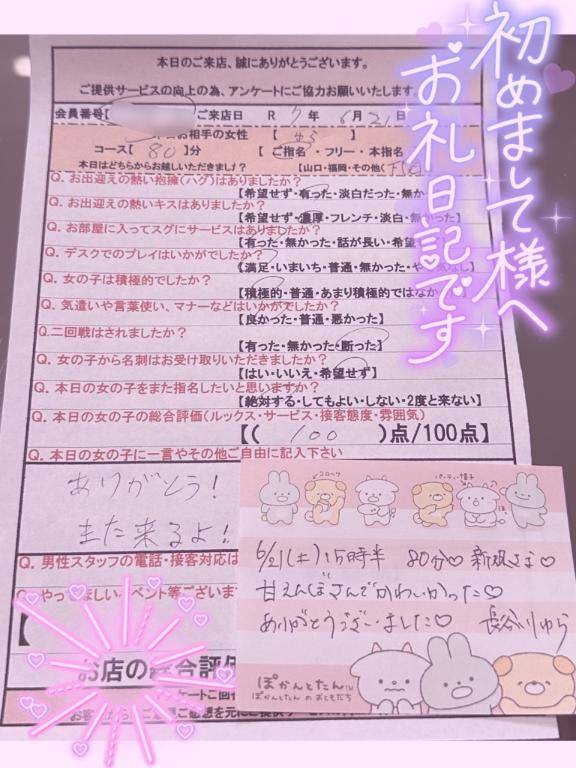 初めまして様へ
お礼日記です
本日のご来店、誠にありがとうございます。
ご提供サービスの向上の為、アンケートにご協力お願いいたします。
会員番号【 ご来店日 R 7年 6月 21日
お相手の女性 【 ゆら 】
コース【 80 】分 【 ご指名・フリー・本指名
本日はどちらからお越しいただきまし? 【山口・福岡・その他(
Q. お出迎えの熱い抱擁(ハグ)はありましたか?
【希望せず・有った・淡白だった・無か
Q. お出迎えの熱いキスはありましたか?
【希望せず・濃厚・フレンチ・淡白・無かった】
Q. お部屋に入ってスグにサービスはありましたか?
【有った・無かった・話が長い・希望
Q. デスクでのプレイはいかがでしたか?
【満足・いまいち・普通・無かった・や
Q. 女の子は積極的でしたか?
【積極的・普通・あまり積極的ではなか
Q. 気遣いや言葉使い、マナーなどはいかがでしたか?
【良かった・普通・悪かった】
Q.二回戦はされましたか?
【有った・無かった・断った】
Q. 女の子から名刺はお受け取りいただきましたか?
【はい・いいえ・希望せず】
Q. 本日の女の子をまた指名したいと思いますか?
【絶対する・してもよい・しない・2度と来ない】
Q. 本日の女の子の総合評価(ルックス・サービス・接客態度・雰囲気)
【( 100 )点/100点】
Q. 本日の女の子に一言やその他ご自由に記入下さい
ありがとう!
また来るよ!
Q. 男性スタッフの電話・接客対応は
ほしいイベント等ございま
お店の総合評価
6/21(土)15時半 80分♡ 新規さま♡
甘えんぼさんでかわいかった♡
ありがとうございました♡ 長谷川ゆら
ぽかんとたん
ぽかんとたん のおともだち